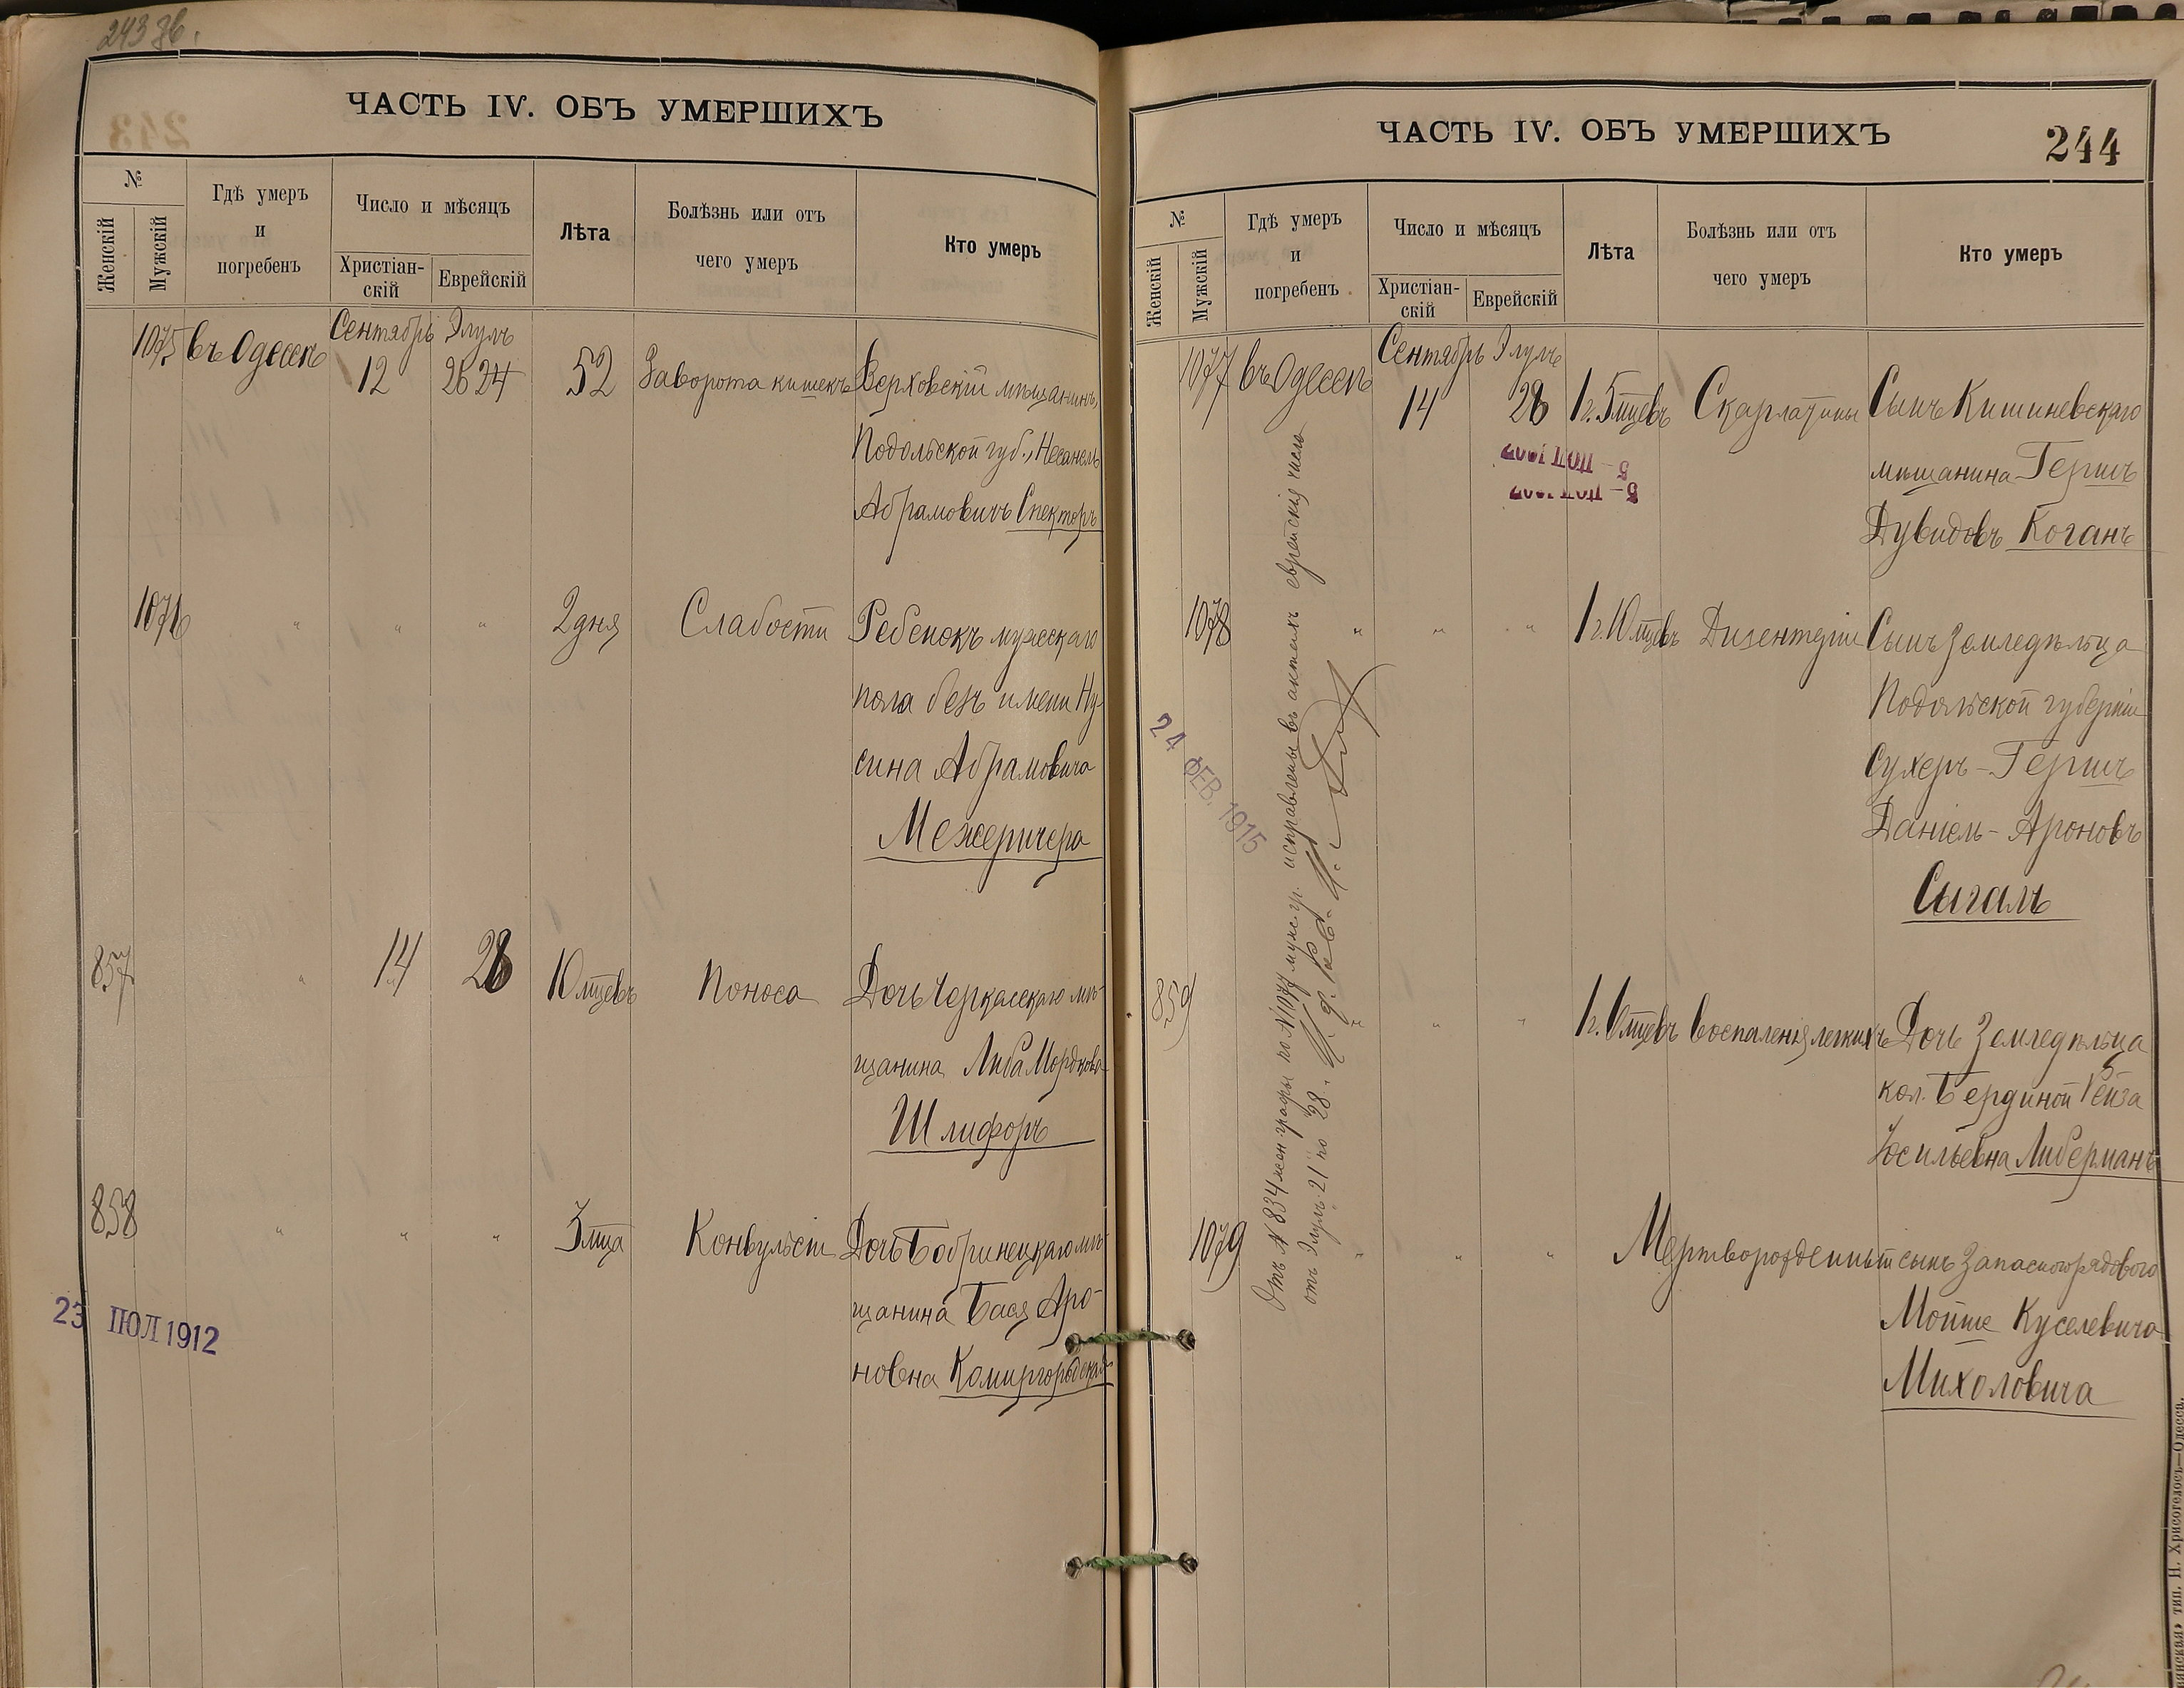 243 зв.
ЧАСТЬ IV. ОБЪ УМЕРШИХЪ
№
Женскій
Мужскій
Гдѣ умеръ
и
погребенъ
Число и мѣсяцъ
Христіан-
скій
Еврейскій
Лѣта
Болѣзнь или отъ
чего умеръ
Кто умеръ
Сентябрь Элулъ
1075 въ Одессѣ 12 26 24 52 Заворота кишекъ Верховскій мѣщанинъ,
Подольской губ., Несанель
Абрамовичъ Спекторъ
1076 " " " 2 дня Слабости Ребенокъ мужескаго
пола безъ имени Ну-
сина Абрамовича
Межеричера
857 " 14 28 10 мцевъ Поноса Дочь Черкасскаго мѣ-
щанина Либа Мордкова
Шлифоръ
858 " " " 3 мца Конвульсіи Дочь Бобринецкаго мѣ-
щанина Бася Аро-
новна Камиргородская
23 ІЮЛ 1912
ЧАСТЬ IV. ОБЪ УМЕРШИХЪ
244
№
Женскій
Мужскій
Гдѣ умеръ
и
погребенъ
Число и мѣсяцъ
Христіан-
скій
Еврейскій
Лѣта
Болѣзнь или отъ
чего умеръ
Кто умеръ
Сентябрь Элулъ
1077 въ Одессѣ 14 28 1 г. 5 мцевъ Скарлатины Сынъ Кишиневскаго
мѣщанина Гершъ
Дувидовъ Коганъ
1078 " " " 1 г. 10 мцевъ Дизентеріи Сынъ земледѣльца
Подольской губерніи
Сухеръ-Гершъ
Даніель-Ароновъ
Сигалъ
859 " " 1 г. 6 мцевъ Воспаленія легкихъ Дочь Земледѣльца
кол. Бердиной Рейза
Іосильевна Либерманъ
1079 " " " Мертворожденный сынъ запаснаго рядового
Мойше Куселевича
Михоловича
Отъ № 834 жен. графы по № 1077 муж. гр. исправлены въ актахъ еврейскія числа
отъ Элулъ 21 по 28.
24 ФЕВ. 1915
тип. Н. Хрисогелосъ—Одесса.